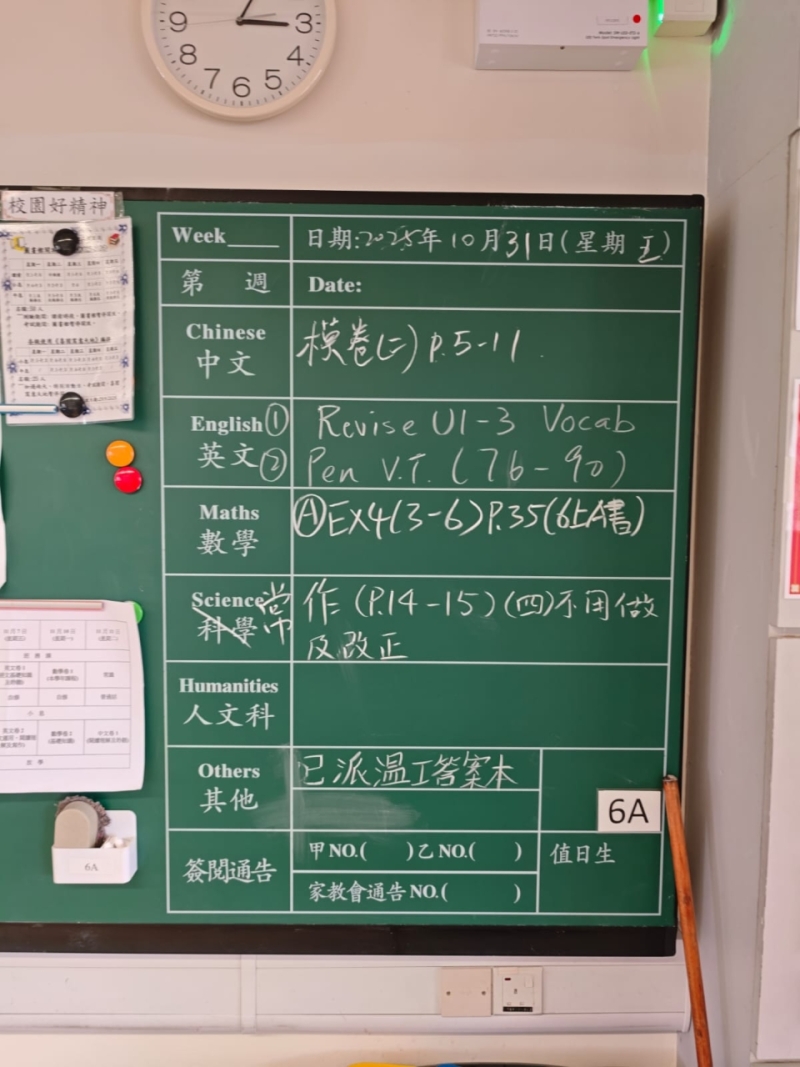 9
3
8
4
7
6
5
校園好精神
Week____ 日期:2025年10月31日(星期五)
第 週 Date:
Chinese
中文
模卷(二) P.5-11
English ①
Revise U1-3 Vocab
英文 ②
Pen V.T. (76-90)
Maths
數學
Ⓐ EX4(3-6)P.35(6上A書)
Science 常
科學
作 (P.14-15) (四)不用做
及改正
Humanities
人文科
Others
其他
已派溫工答案本
6A
簽閱通告
甲NO.( )乙NO.( )
值日生
家教會通告NO.( )
6A